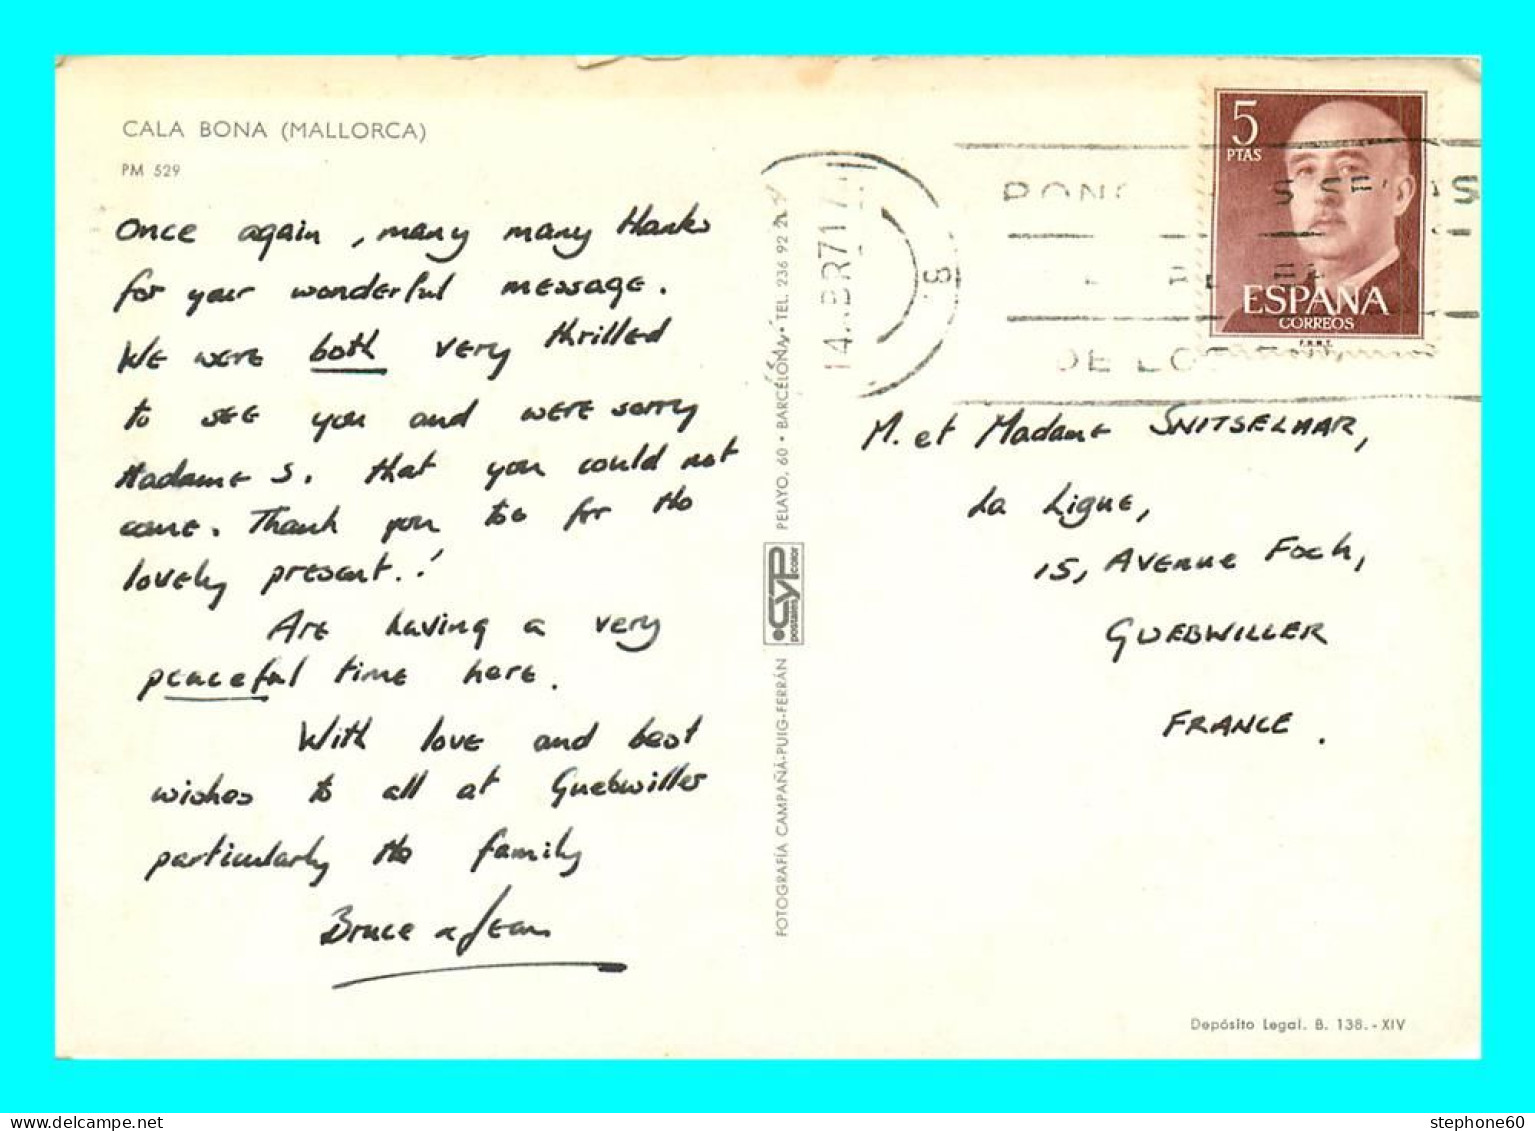 CALA BONA (MALLORCA)
PM 529
Once again, many many thanks
for your wonderful message.
We were both very thrilled
to see you and were sorry
Madame S. that you could not
come. Thank you too for the
lovely present..!
Are having a very
peaceful time here.
With love and best
wishes to all at Guebwiller
particularly the family
Bruce & Jean
FOTOGRAFÍA CAMPAÑÁ-PUIG-FERRÁN
CYP
postales color
PELAYO, 60 • BARCELONA • TEL. 236 92
14 ABR 71
5
PTAS
ESPAÑA
CORREOS
F.N.M.T.
M. et Madame SNITSELAAR,
La Ligue,
15, Avenue Foch,
GUEBWILLER
FRANCE.
Depósito Legal. B. 138.-XIV
stephone60